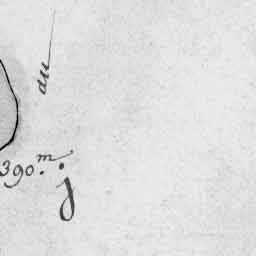 au
390.m
j